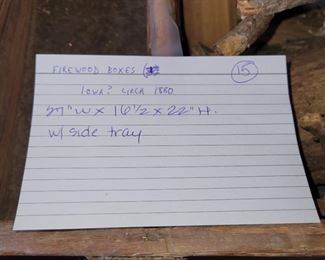 FIREWOOD BOXES 15
IOWA? CIRCA 1880
27"W x 16 1/2 x 22"H.
w/ side tray